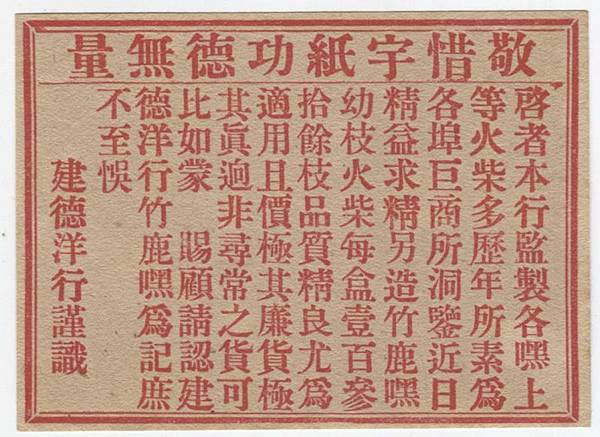 敬惜字紙功德無量
啓者本行監製各嘿上
等火柴多歷年所素爲
各埠巨商所洞鑒近日
精益求精另造竹鹿嘿
幼枝火柴每盒壹百參
拾餘枝品質精良尤爲
適用且價極其廉貨極
其眞逈非尋常之貨可
比如蒙　賜顧請認建
德洋行竹鹿嘿爲記庶
不至悞
建德洋行謹識